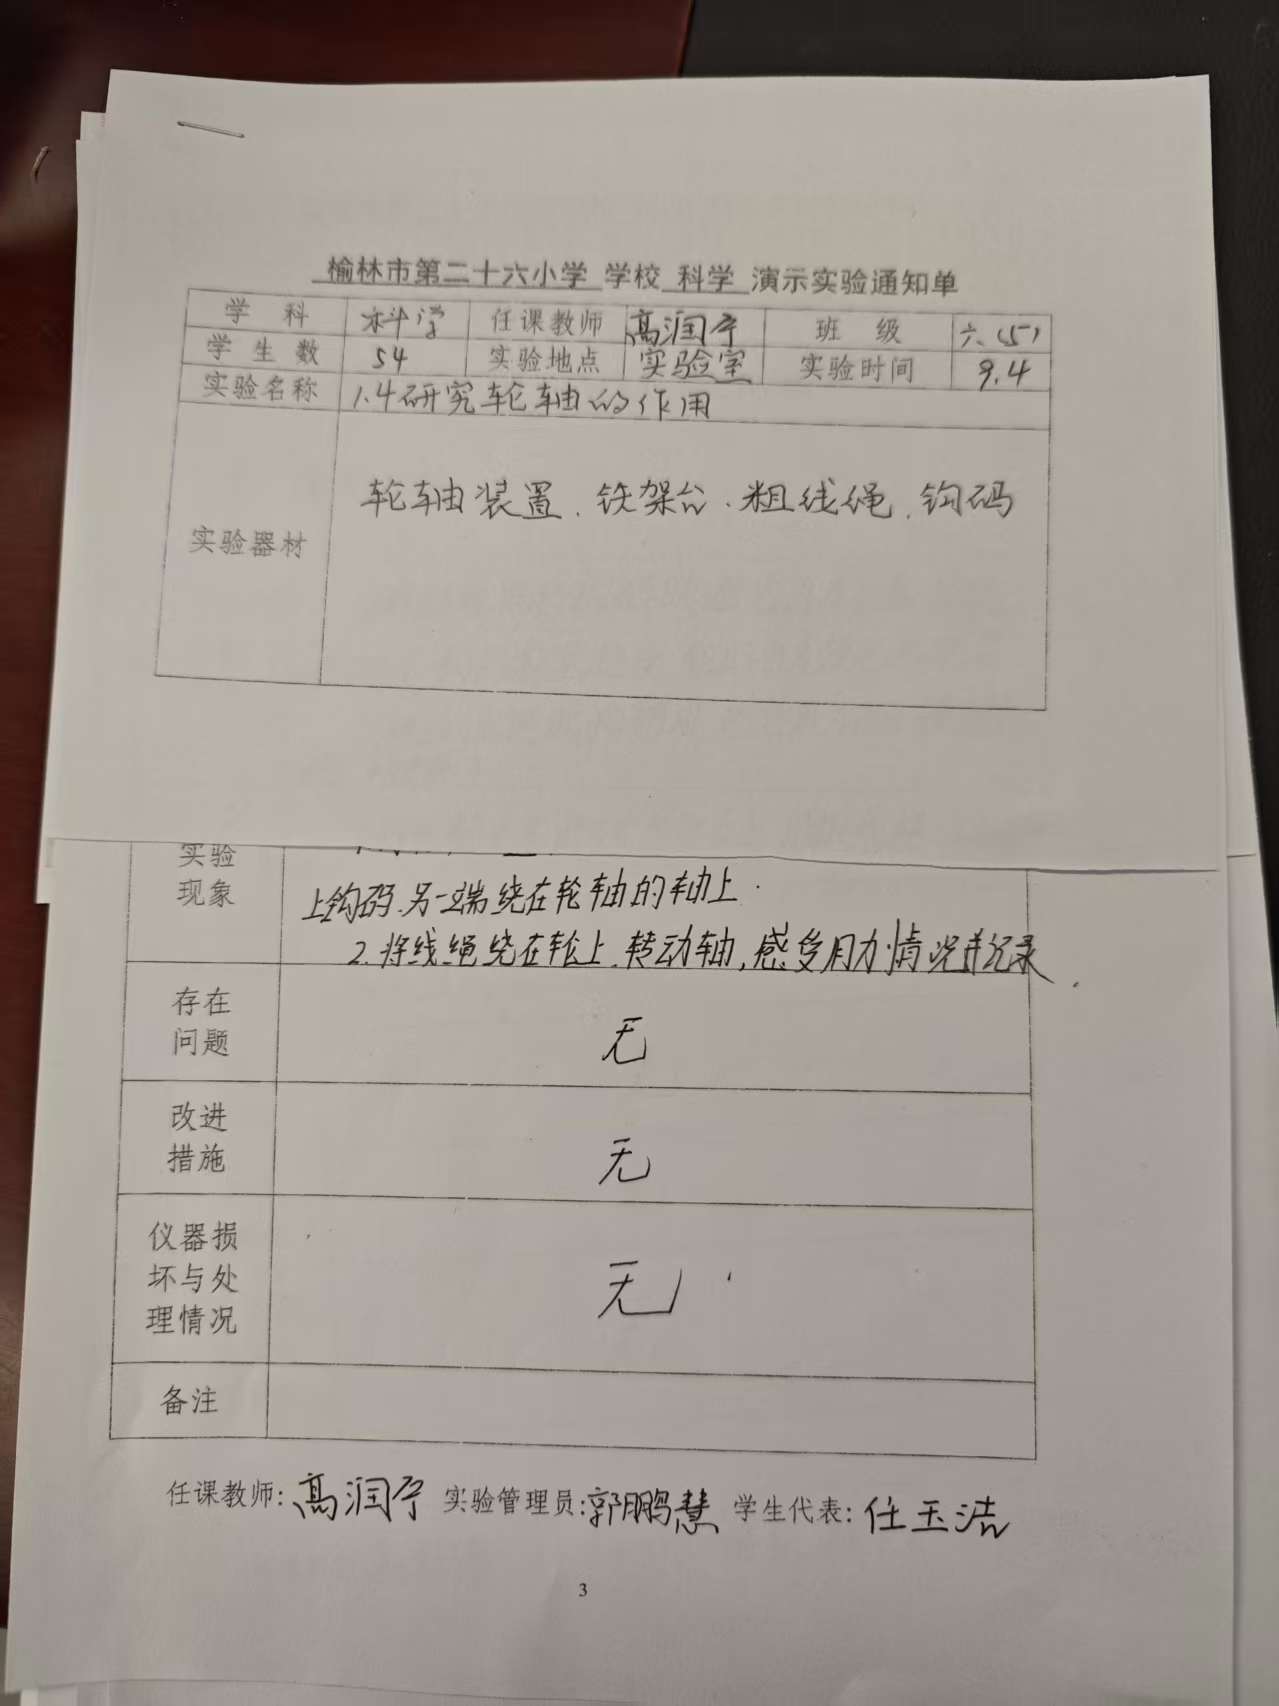 榆林市第二十六小学 学校 科学 演示实验通知单
学 科 科学 任课教师 高润宁 班 级 六(5)
学生数 54 实验地点 实验室 实验时间 9.4
实验名称 1.4研究轮轴的作用
实验器材 轮轴装置、铁架台、粗线绳、钩码
实验
现象
上钩码.另一端绕在轮轴的轴上.
2.将线绳绕在轮上.转动轴,感受用力情况并记录.
存在
问题
无
改进
措施
无
仪器损
坏与处
理情况
无
备注
任课教师: 高润宁 实验管理员: 郭鹏慧 学生代表: 任玉洁
3